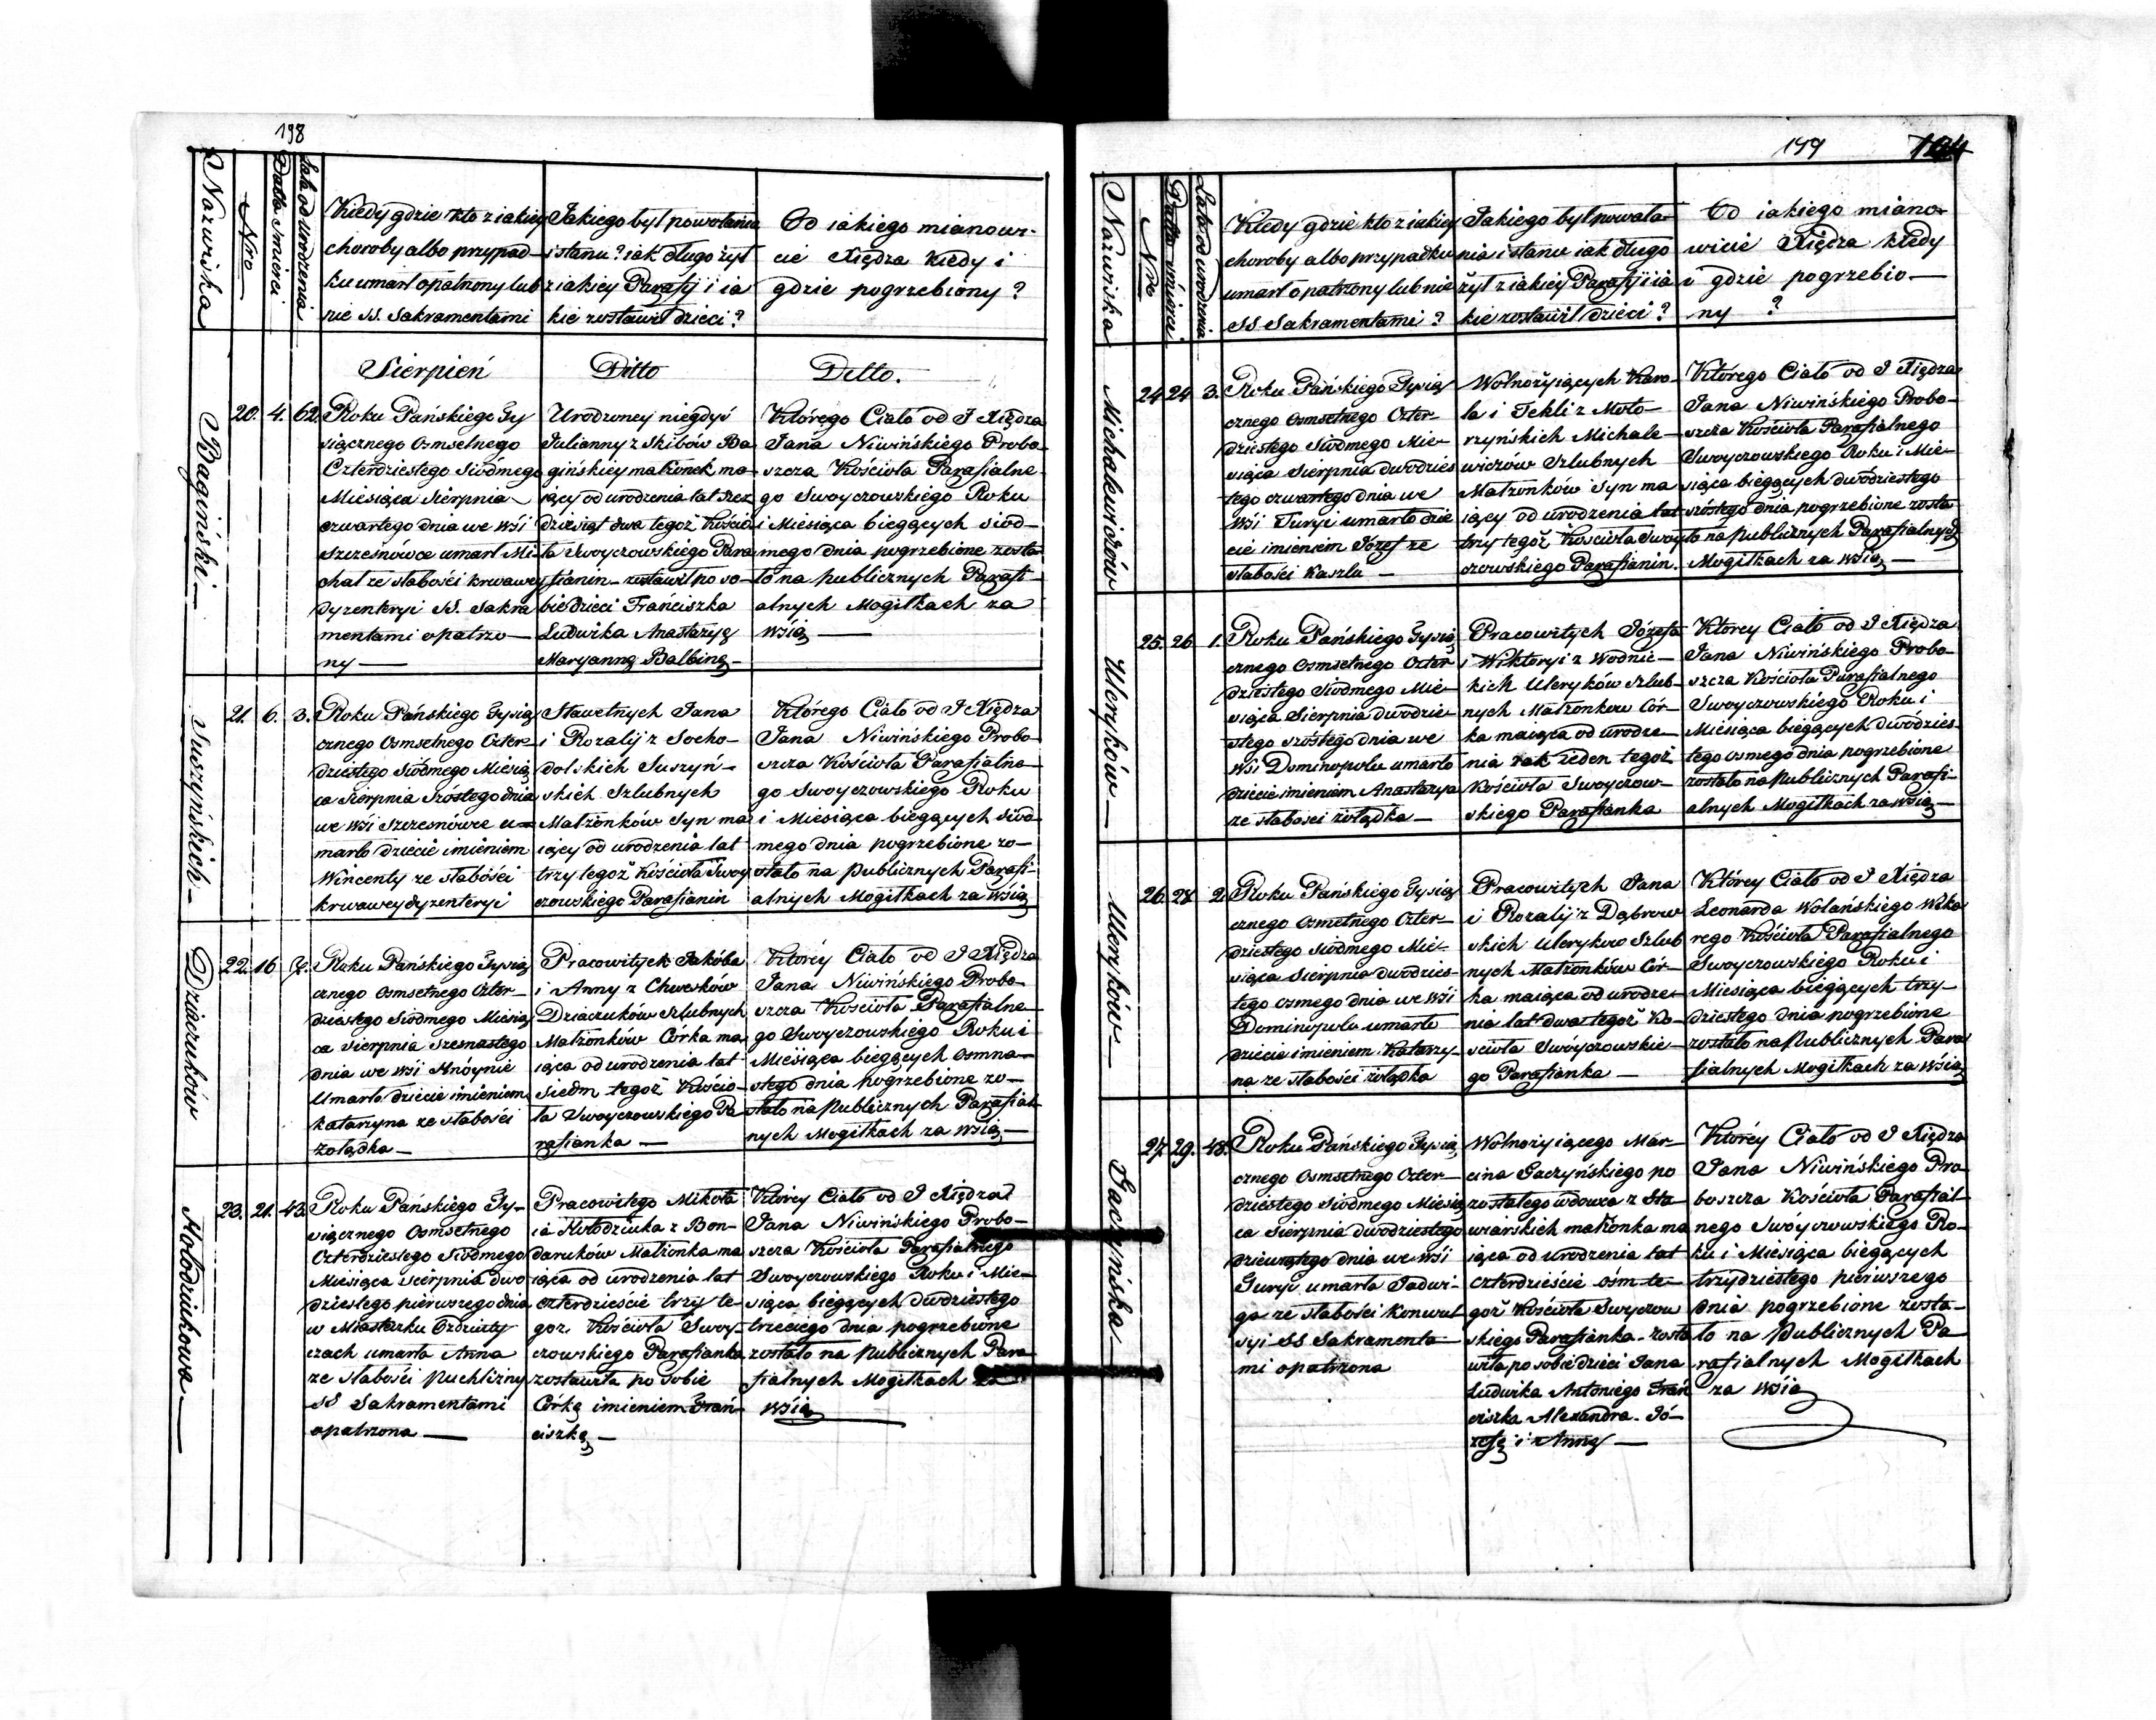 198
Nazwiska
Nro
Datta smierci
Lata od urodzenia
Kiedy gdzie kto z iakiey
choroby albo przypad-
ku umarł opatrzony lub
nie SS. Sakramentami
Jakiego był powołania
i stanu? iak długo żył
z iakiey Parafij i ia
kie zostawił dzieci?
Od iakiego mianowi-
cie Xiędza kiedy i
gdzie pogrzebiony?
Sierpień
Ditto
Ditto.
Bagiński
20. 4. 62.
Roku Pańskiego Ty
siącznego Osmsetnego
Czterdziestego Siódmego
Miesiąca Sierpnia
czwartego dnia we Wsi
Szczesnówce umarł Mi-
chał ze słabości krwawey
dyzenteryi SS. Sakra
mentami opatrzo-
ny
Urodzoney niegdyś
Julianny z Skibów Ba
gińskiey małżonek ma
iący od urodzenia lat szez
dziesiąt dwa tegoż Kościo
ła Swoyczowskiego Para
fianin zostawił po so-
bie dzieci Franciszka
Ludwika Anastazyą
Maryannę Balbinę
Którego Ciało od J Xiędza
Jana Niwińskiego Probo
szcza Kościoła Parafialne
go Swoyczowskiego Roku
i Miesiąca bieżących siód-
mego dnia pogrzebione zosta
ło na publicznych Parafi
alnych Mogiłkach za
Wsią
Suszyńskich
21. 6. 3.
Roku Pańskiego Tysią
cznego Osmsetnego Czter-
dziestego Siódmego Miesią
ca Sierpnia Szóstego dnia
we Wsi Szczesnówce u-
marło dziecie imieniem
Wincenty ze słabości
krwawey dyzenteryi
Sławetnych Jana
i Rozalij z Socho-
dolskich Suszyń-
skich Szlubnych
Małżonków Syn ma
iący od urodzenia lat
trzy tegoż Kościoła Swoy
czowskiego Parafianin
Którego Ciało od J Xiędza
Jana Niwińskiego Probo-
szcza Kościoła Parafialne-
go Swoyczowskiego Roku
i Miesiąca bieżących siód
mego dnia pogrzebione zo-
stało na Publicznych Parafi-
alnych Mogiłkach za Wsią
Dziaczuków
22. 16 7.
Roku Pańskiego Tysią
cznego Osmsetnego Czter-
dziestego Siódmego Miesią
ca Sierpnia Szesnastego
dnia we Wsi Hnóynie
Umarło dziecie imieniem
Katarzyna ze słabości
żołądka
Pracowitych Jakóba
i Anny z Chwesków
Dziaczuków Szlubnych
Małżonków Córka ma
iąca od urodzenia lat
siedm tegoż Kościo-
ła Swoyczowskiego Pa
rafianka
Którey Ciało od J Xiędza
Jana Niwińskiego Probo-
szcza Kościoła Parafialne-
go Swoyczowskiego Roku i
Miesiąca bieżących Osmna-
stego dnia pogrzebione zo-
stało na Publicznych Parafial
nych Mogiłkach za Wsią
Hołodziukowa
23. 21. 43.
Roku Pańskiego Ty-
siącznego Osmsetnego
Czterdziestego Siódmego
Miesiąca Sierpnia dwo
dziestego pierwszego dnia
w Miasteczku Ozdziuty
czach umarła Anna
ze słabości puchlizny
SS Sakramentami
opatrzona
Pracowitego Mikoła
ia Hołodziuka z Bon-
daruków Małżonka ma
iąca od urodzenia lat
czterdzieście trzy te-
goż Kościoła Swoy-
czowskiego Parafianka
zostawiła po sobie
Córkę imieniem Fran-
ciszkę
Którey Ciało od J Xiędza
Jana Niwińskiego Probo-
szcza Kościoła Parafialnego
Swoyczowskiego Roku i Mie-
siąca bieżących dwódziestego
trzeciego dnia pogrzebione
zostało na Publicznych Para
fialnych Mogiłkach za
Wsią
199
Nazwiska
Nro
Datta smierci
Lata od urodzenia
Kiedy gdzie kto z iakiey
choroby albo przypadku
umarł opatrzony lub nie
SS Sakramentami?
Jakiego był powoła-
nia i stanu iak długo
żył z iakiey Parafij i ia
kie zostawił dzieci?
Od iakiego miano-
wicie Xiędza kiedy
i gdzie pogrzebio-
ny ?
Michalewiczów
24 24 3.
Roku Pańskiego Tysią
cznego Osmsetnego Czter-
dziestego Siódmego Mie-
siąca Sierpnia dwodzies
tego czwartego dnia we
Wsi Turyi umarło dzie
cie imieniem Józef ze
słabości Kaszlu
Wolnożyiących Karo-
la i Tekli z Moto-
rzyńskich Michale-
wiczów Szlubnych
Małżonków Syn ma
iący od urodzenia lat
trzy tegoż Kościoła Swoy
czowskiego Parafianin.
Którego Ciało od J Xiędza
Jana Niwińskiego Probo-
szcza Kościoła Parafialnego
Swoyczowskiego Roku i Mie-
siąca bieżących dwódziestego
szóstego dnia pogrzebione zosta
ło na Publicznych Parafialnych
Mogiłkach za Wsią
Uleryków
25. 26 1.
Roku Pańskiego Tysią
cznego Osmsetnego Czter
dziestego Siódmego Mie-
siąca Sierpnia dwodzie-
stego szóstego dnia we
Wsi Dominopolu umarło
dziecie imieniem Anastazya
ze słabości żołądka
Pracowitych Józefa
i Wiktoryi z Wodnic-
kich Uleryków Szlub-
nych Małżonków Cór-
ka maiąca od urodze-
nia rok ieden tegoż
Kościoła Swoyczow-
skiego Parafianka
Którey Ciało od J Xiędza
Jana Niwińskiego Probo-
szcza Kościoła Parafialnego
Swoyczowskiego Roku i
Miesiąca bieżących dwódzies-
tego osmego dnia pogrzebione
zostało na Publicznych Parafi-
alnych Mogiłkach za Wsią
Uleryków
26. 28 2.
Roku Pańskiego Tysią
cznego Osmsetnego Czter-
dziestego Siódmego Mie-
siąca Sierpnia dwodzies-
tego osmego dnia we Wsi
Dominopolu umarło
dziecie imieniem Katarzy-
na ze słabości żołądka
Pracowitych Jana
i Rozalij z Dąbrow
skich Uleryków Szlub
nych Małżonków Cór-
ka maiąca od urodze-
nia lat dwa tegoż Ko-
ścioła Swóyczowskie-
go Parafianka
Którey Ciało od J Xiędza
Leonarda Wolańskiego Wika
rego Kościoła Parafialnego
Swoyczowskiego Roku i
Miesiąca bieżących trzy-
dziestego dnia pogrzebione
zostało na Publicznych Para
fialnych Mogiłkach za Wsią
Gaczyńska
27. 29. 48.
Roku Pańskiego Tysią
cznego Osmsetnego Czter-
dziestego Siódmego Miesią
ca Sierpnia dwodziestego
dziewiątego dnia we Wsi
Turyi umarła Jadwi-
ga ze słabości Konwul
syi SS Sakramenta
mi opatrzona
Wolnożyiącego Mar-
cina Gaczyńskiego po
zostałego wdowca z Sta
wiarskich małżonka ma
iąca od urodzenia lat
czterdzieście ośm te-
goż Kościoła Swyczow
skiego Parafianka zosta
wiła po sobie dzieci Jana
Ludwika Antoniego Fran
ciszka Alexandra Jó-
zefę i Annę
Którey Ciało od J Xiędza
Jana Niwińskiego Pro
boszcza Kościoła Parafial-
nego Swóyczowskiego Ro-
ku i Miesiąca bieżących
trzydziestego pierwszego
dnia pogrzebione zosta-
ło na Publicznych Pa
rafialnych Mogiłkach
za Wsią